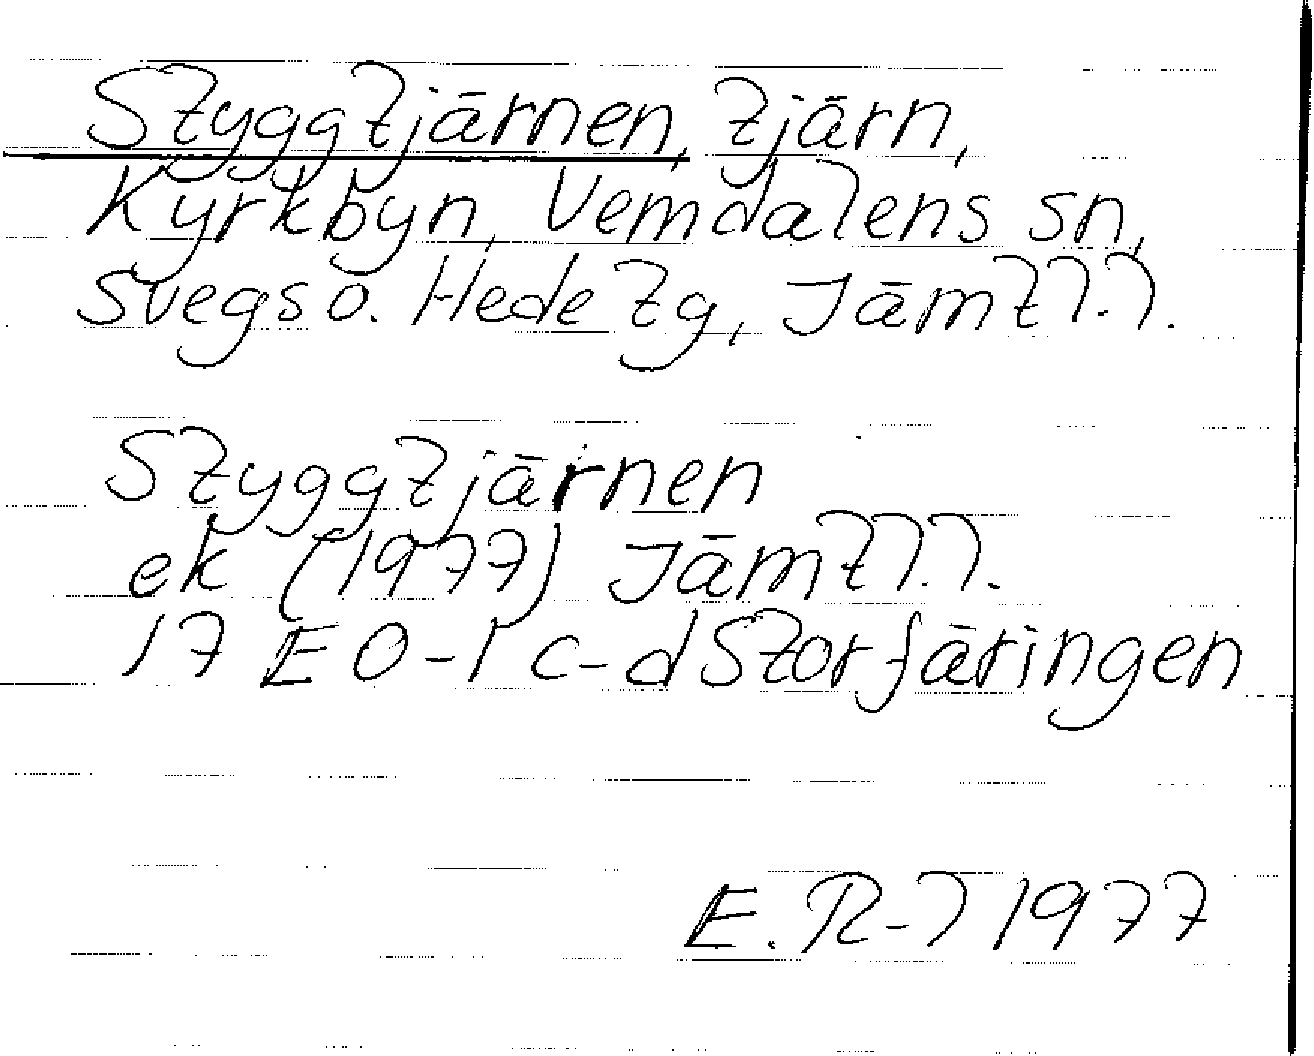 Styggtjärnen, tjärn,
Kyrkbyn, Vemdalens sn,
Svegs o. Hede tg, Jämtl.l.
Styggtjärnen
ek (1977) Jämtl.l.
17 E 0-1 c-d Storfjäringen
E. R-l 1977